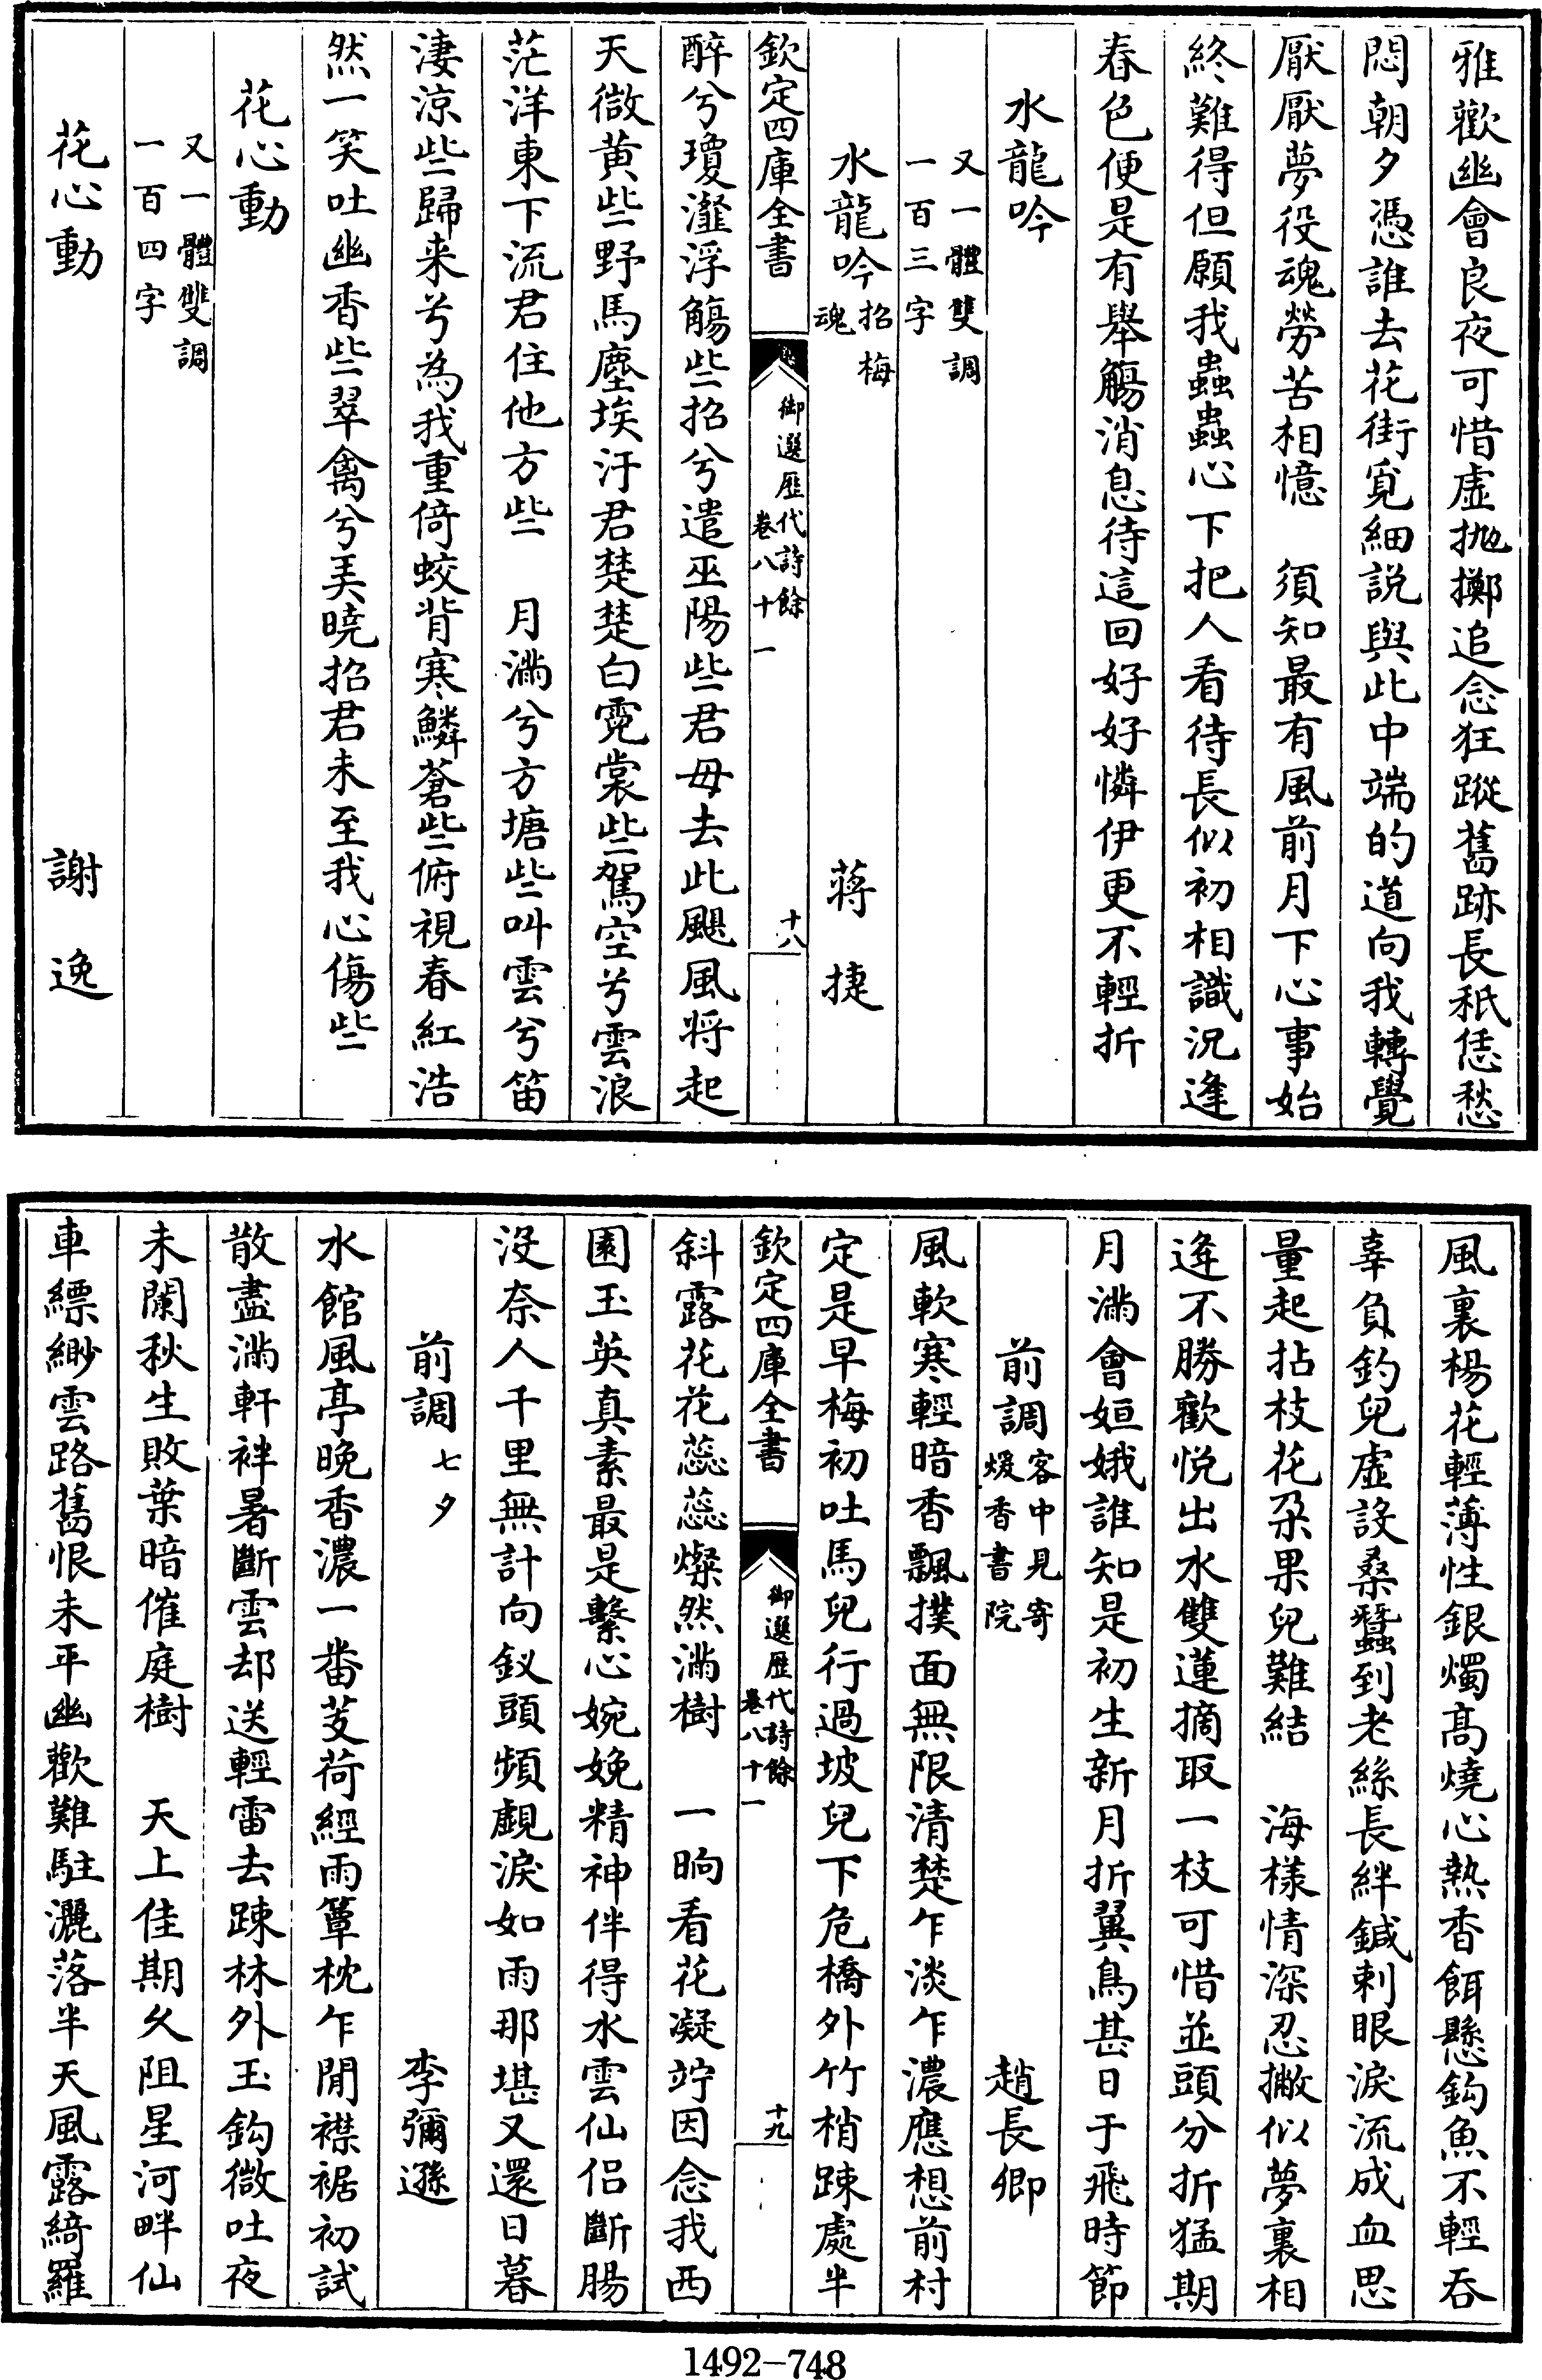 雅歡幽會良夜可惜虛抛擲追念狂蹤舊跡長秖恁愁
悶朝夕憑誰去花街覓細説與此中端的道向我轉覺
厭厭夢役魂勞苦相憶　須知最有風前月下心事始
終難得但願我蟲蟲心下把人看待長似初相識況逢
春色便是有舉觴消息待這回好好憐伊更不輕折
水龍吟
又一體雙調
一百三字
水龍吟招梅魂　蔣捷
欽定四庫全書　御選歷代詩餘卷八十一　十八
醉兮瓊瀣浮觴些招兮遣巫陽些君毋去此颶風将起
天微黄些野馬塵埃汙君楚楚白霓裳些駕空兮雲浪
茫洋東下流君住他方些　月滿兮方塘些叫雲兮笛
淒涼些歸来兮為我重倚蛟背寒鱗蒼些俯視春紅浩
然一笑吐幽香些翠禽兮弄曉招君未至我心傷些
花心動
又一體雙調
一百四字
花心動　謝逸
風裏楊花輕薄性銀燭高燒心熱香餌懸鈎魚不輕吞
辜負釣兒虛設桑蠶到老絲長絆鍼刺眼淚流成血思
量起拈枝花朶果兒難結　海様情深忍撇似夢裏相
逢不勝歡悅出水雙蓮摘取一枝可惜並頭分折猛期
月滿會姮娥誰知是初生新月折翼鳥甚日于飛時節
前調客中見寄煖香書院　趙長卿
風軟寒輕暗香飄撲面無限清楚乍淡乍濃應想前村
定是早梅初吐馬兒行過坡兒下危橋外竹梢踈處半
欽定四庫全書　御選歷代詩餘卷八十一　十九
斜露花花蕊蕊燦然滿樹　一晌看花凝竚因念我西
園玉英真素最是繫心婉娩精神伴得水雲仙侣斷腸
沒奈人千里無計向釵頭頻覷淚如雨那堪又還日暮
前調七夕　李彌遜
水館風亭晚香濃一番芰荷經雨簟枕乍閒襟裾初試
散盡滿軒袢暑斷雲却送輕雷去踈林外玉鈎微吐夜
未闌秋生敗葉暗催庭樹　天上佳期久阻星河畔仙
車縹緲雲路舊恨未平幽歡難駐灑落半天風露綺羅
1492-748